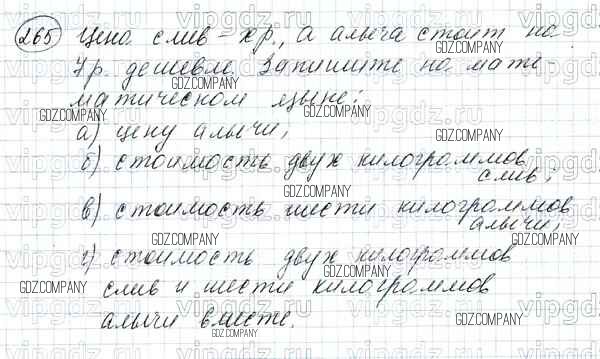 265 Цена слив - х р., а алыча стоит на
7 р. дешевле. Запишите на мате-
матическом языке:
а) цену алычи;
б) стоимость двух килограммов
слив;
в) стоимость шести килограммов
алычи;
г) стоимость двух килограммов
слив и шести килограммов
алычи вместе.
GDZ.COMPANY
vipgdz